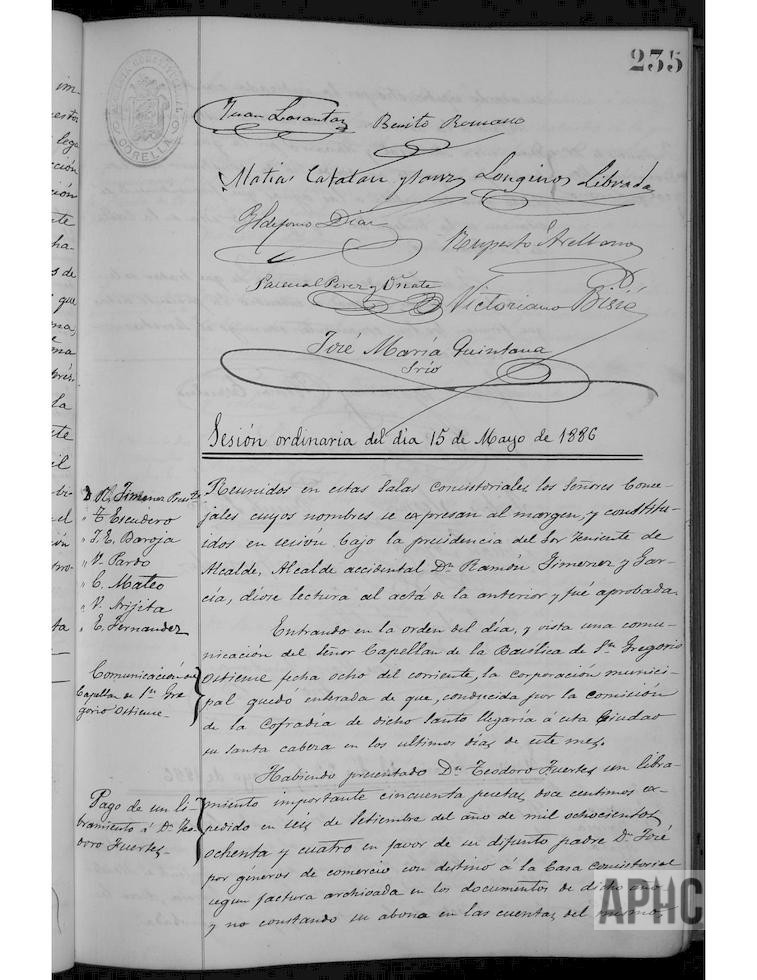 235
ALCALDIA CONSTITUCIONAL
CORELLA
Juan Lasantas Benito Romano
Matias Catalan y Sanz Longinos Librada
Yldefonso Diaz
Ruperto Arellano
Pascual Perez y Oñate
Victoriano Bisié
José María Quintana
Srio
Sesión ordinaria del dia 15 de Mayo de 1886
D. R. Jimenez
" T. Escudero
" J. E. Baroja
" V. Pardo
" C. Mateo
" V. Arijita
" E. Fernandez
Reunidos en estas Salas Consistoriales los Señores Conce-
jales cuyos nombres se expresan al margen, y constitui-
dos en sesión bajo la presidencia del Sor Teniente de
Alcalde, Alcalde accidental Dn Ramón Jimenez y Gar-
cía, dióse lectura al acta de la anterior y fué aprobada.
Comunicación del
Capellan de Sn Gre
gorio Ostiense
Entrando en la orden del día, y vista una comu-
nicación del Señor Capellan de la Basílica de Sn Gregorio
Ostiense fecha ocho del corriente, la corporación munici-
pal quedó enterada de que, conducida por la comisión
de la Cofradia de dicho Santo llegaría á esta Ciudad
su Santa cabeza en los ultimos dias de este mes.
Pago de un li-
bramiento á Dn Teo-
doro Fuertes
Habiendo presentado Dn Teodoro Fuertes un libra-
miento importante cincuenta pesetas doce centimos ex-
pedido en seis de Setiembre del año de mil ochocientos
ochenta y cuatro en favor de su difunto padre Dn José
por géneros de comercio con destino á la Casa Consistorial
segun factura archivada en los documentos de dicho año
y no constando su abono en las cuentas del mismo,
im-
lega
ción
ha-
s de
que
la
te
il
el
ta
APHC